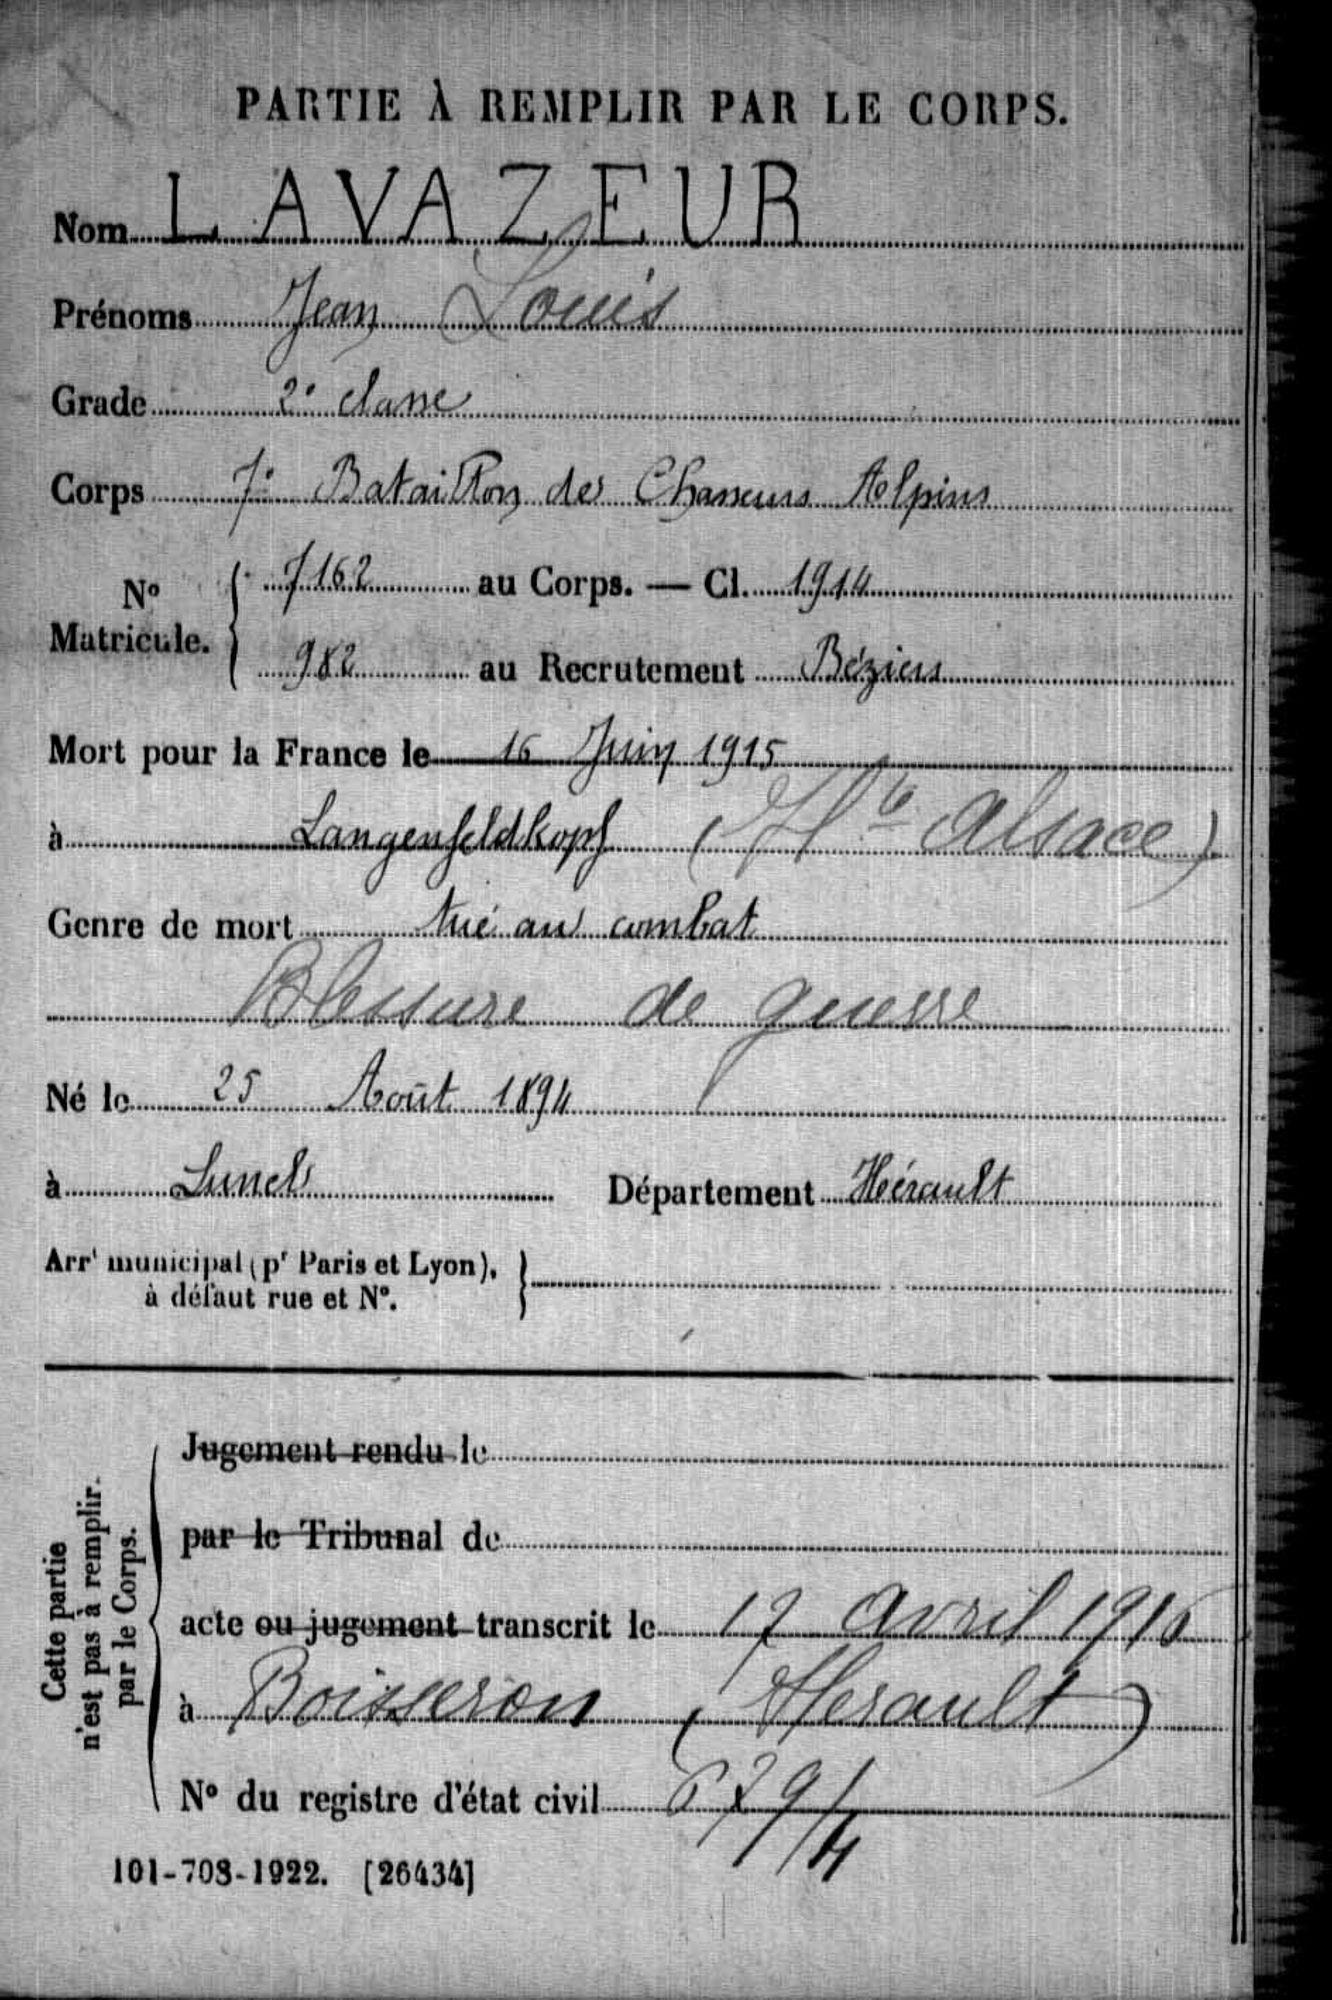 PARTIE À REMPLIR PAR LE CORPS.
Nom LAVAZEUR
Prénoms Jean Louis
Grade 2e classe
Corps 7e Bataillon des Chasseurs Alpins
No Matricule. { 7162 au Corps. — Cl. 1914
982 au Recrutement Béziers
Mort pour la France le 16 Juin 1915
à Langenfeldkopf (Hte Alsace)
Genre de mort tué au combat
Blessure de guerre
Né le 25 Août 1894
à Lunel Département Hérault
Arrt municipal (pr Paris et Lyon), }
à défaut rue et No.
Cette partie
n'est pas à remplir
par le Corps.
Jugement rendu le
par le Tribunal de
acte ou jugement transcrit le 17 Avril 1916
à Boisseron (Herault)
No du registre d'état civil
101-708-1922. [26434]